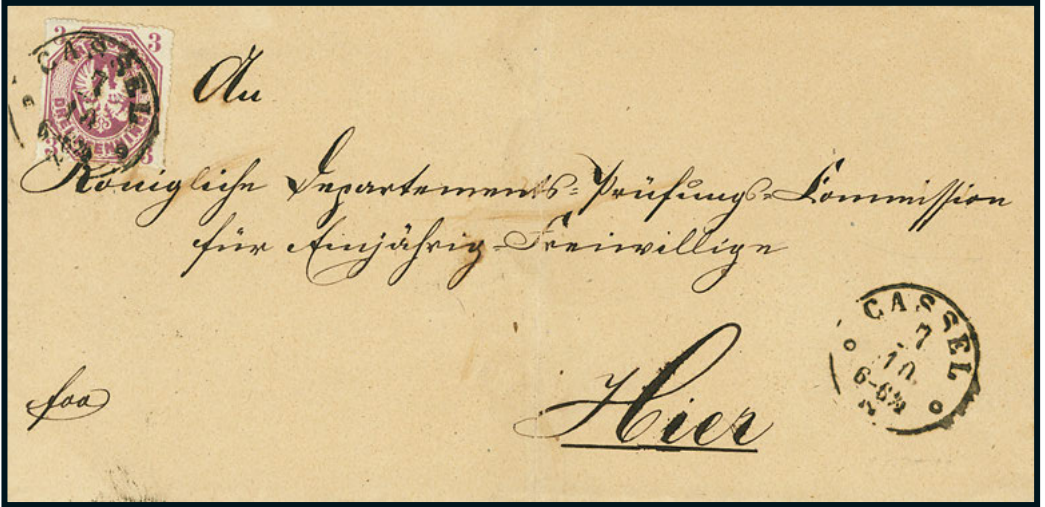 3 3
DREI PFENNINGE
3 3
CASSEL
7
10
6-6½
N
An
Königliche Departements-Prüfungs-Commission
für Einjährig-Freiwillige
CASSEL
7
10.
6-6½
N
frco
Hier